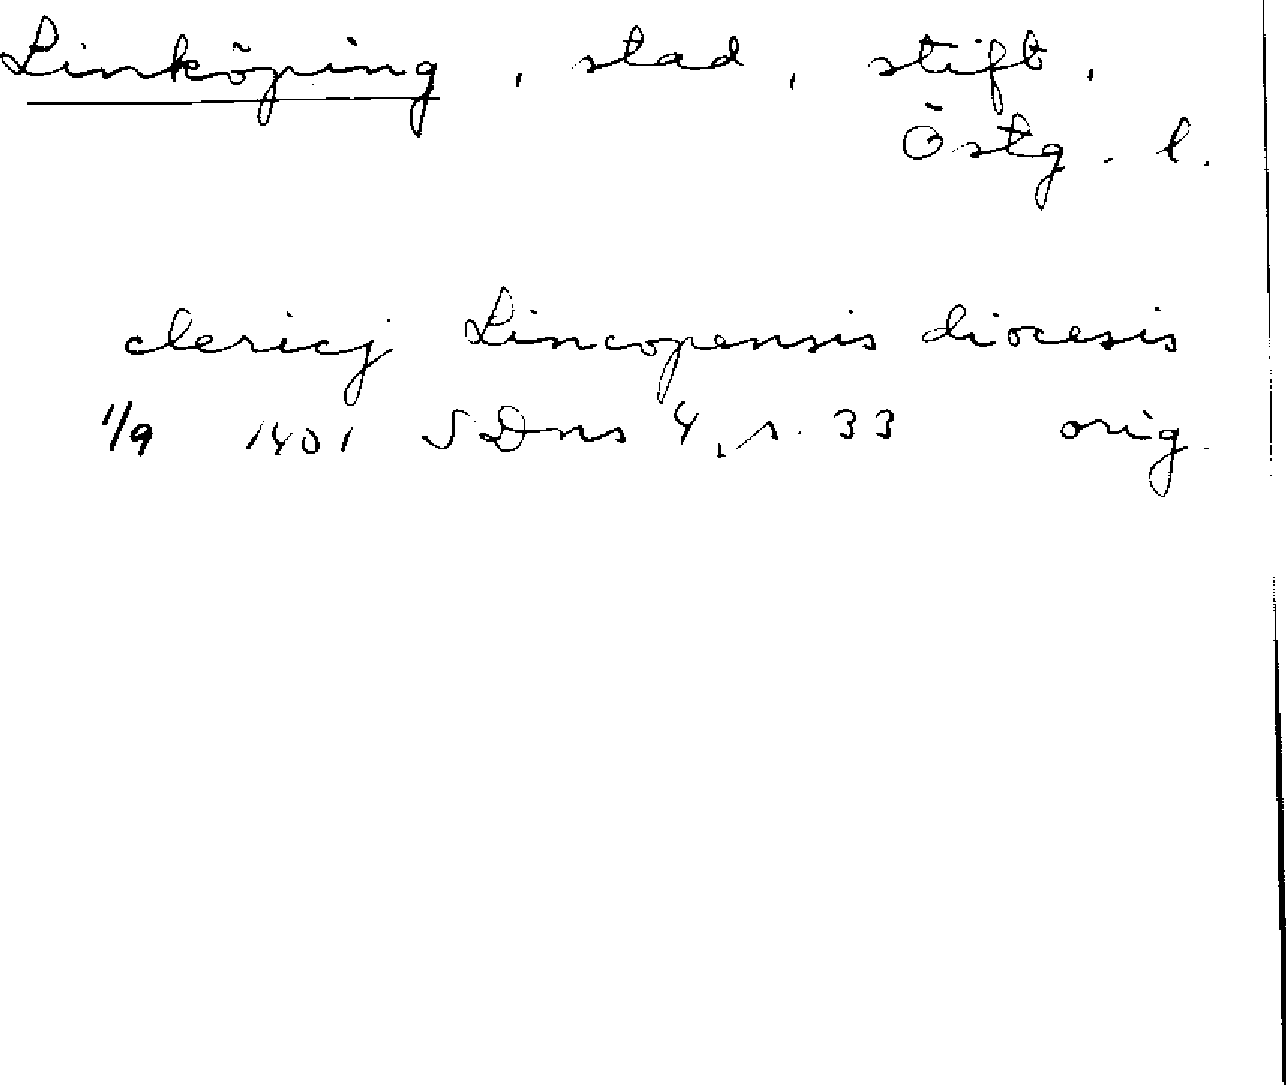 Linköping, stad, stift,
Östg. l.
clericj Lincopensis diocesis
1/9 1401 SDns 4, s. 33 orig.